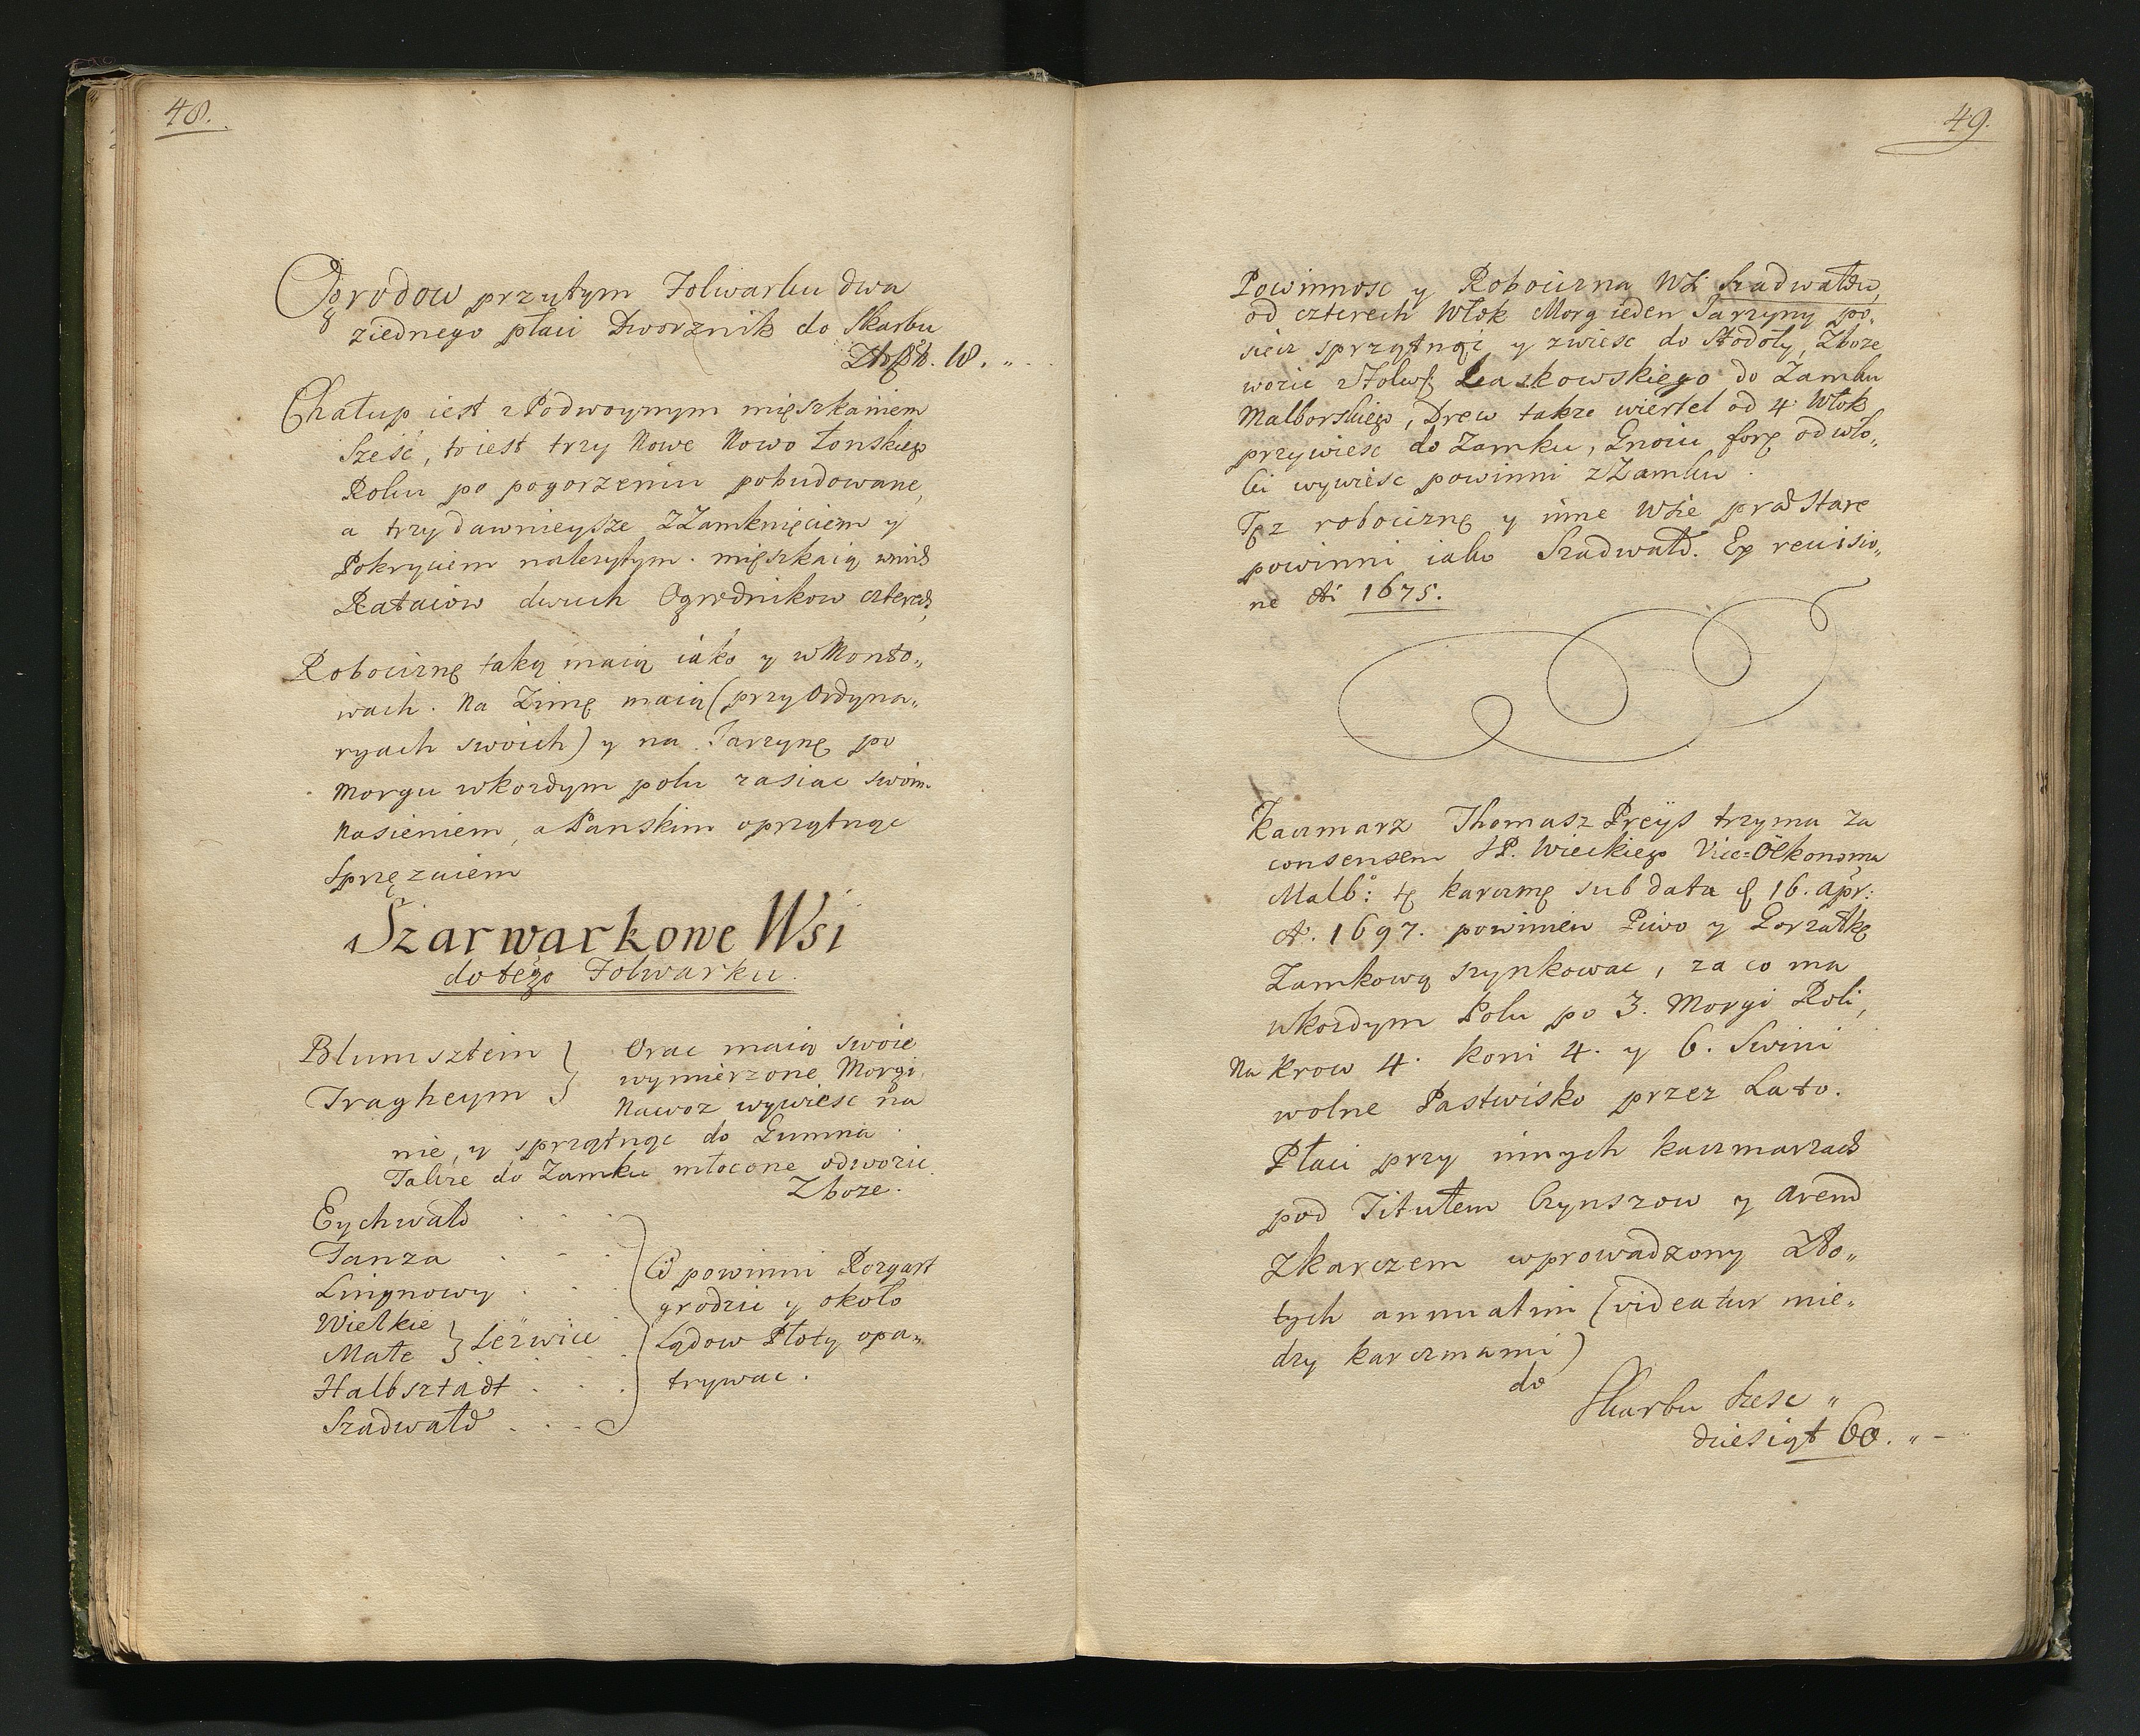 48.
Ogrodow przytym Folwarku dwa
ziednego płaci Dwornik do Skarbu
18.
Chałup iest z Podwoynym mięszkaniem
Sześć, to iest trzy Nowe Nowo Łonskiego
Roku po pogorzeniu pobudowane,
a trzy dawnieysze zZamknięciem y
Pokryciem należytym. mięszkaią wnich
Rataiow dwuch Ogrodnikow czterech,
Robociznę taką maią iako y w Monto„
wach. Na Zimę maią (przy Ordyna„
ryach swoich) y na Jarzynę po
Morgu wkożdym polu zasiac swoim
Nasieniem, a Panskim oprzątnąc
Sprzężaiem
Szarwarkowe Wsi
do tego Folwarku.
Blumsztein } Orac maią swoie
Tragheym } wymierzone Morgi
Nawoz wywiesc na
nie, y sprzątnąc do Gumna.
Takze do Zamku młocone odwozic
Zboze.
Eychwałd
Tanza
Lingnowy
Wielkie
Małe } Lezwice
Halbsztadt
Szadwałd
Ci powinni Rozgart
grodzic y około
Lądow Płoty opa„
trywac.
49.
Powinnosc y Robocizna Wsi Szadwałdu,
od czterech Włok Morg ieden Jarzyny po„
siec sprzątnąć y zwiesc do Stodoły, Zboze
wozic Laskowskiego do Zamku
Malborskiego, Drew takze wiertel od 4 Włok
przywiesc do Zamku, Gnoiu forę od wło„
ki wywiesc powinni z Zamku.
Tęz robociznę y inne Wsie
powinni iako Szadwałd. Ex revisio„
ne Ai 1675.
Karczmarz Thomasz Preÿs trzyma za
consensem JP. Wieckiego Vice=Oëkonoma
Malb: tę karczmę sub data 16. Apr:
A. 1697. powinien Piwo y Gorzałkę
Zamkową szynkowac, za co ma
wkożdym Polu po 3. Morgi Roli,
Na Krow 4. koni 4. y 6. Swini
wolne Pastwisko przez Lato.
Płaci przy innych karczmarzach
pod Titułem Czynszow y Arend
zkarczem wprowadzony Zło„
tych annuatim (videatur mie„
dzy karczmami)
do
Skarbu szesc„
dziesiąt 60. „ –